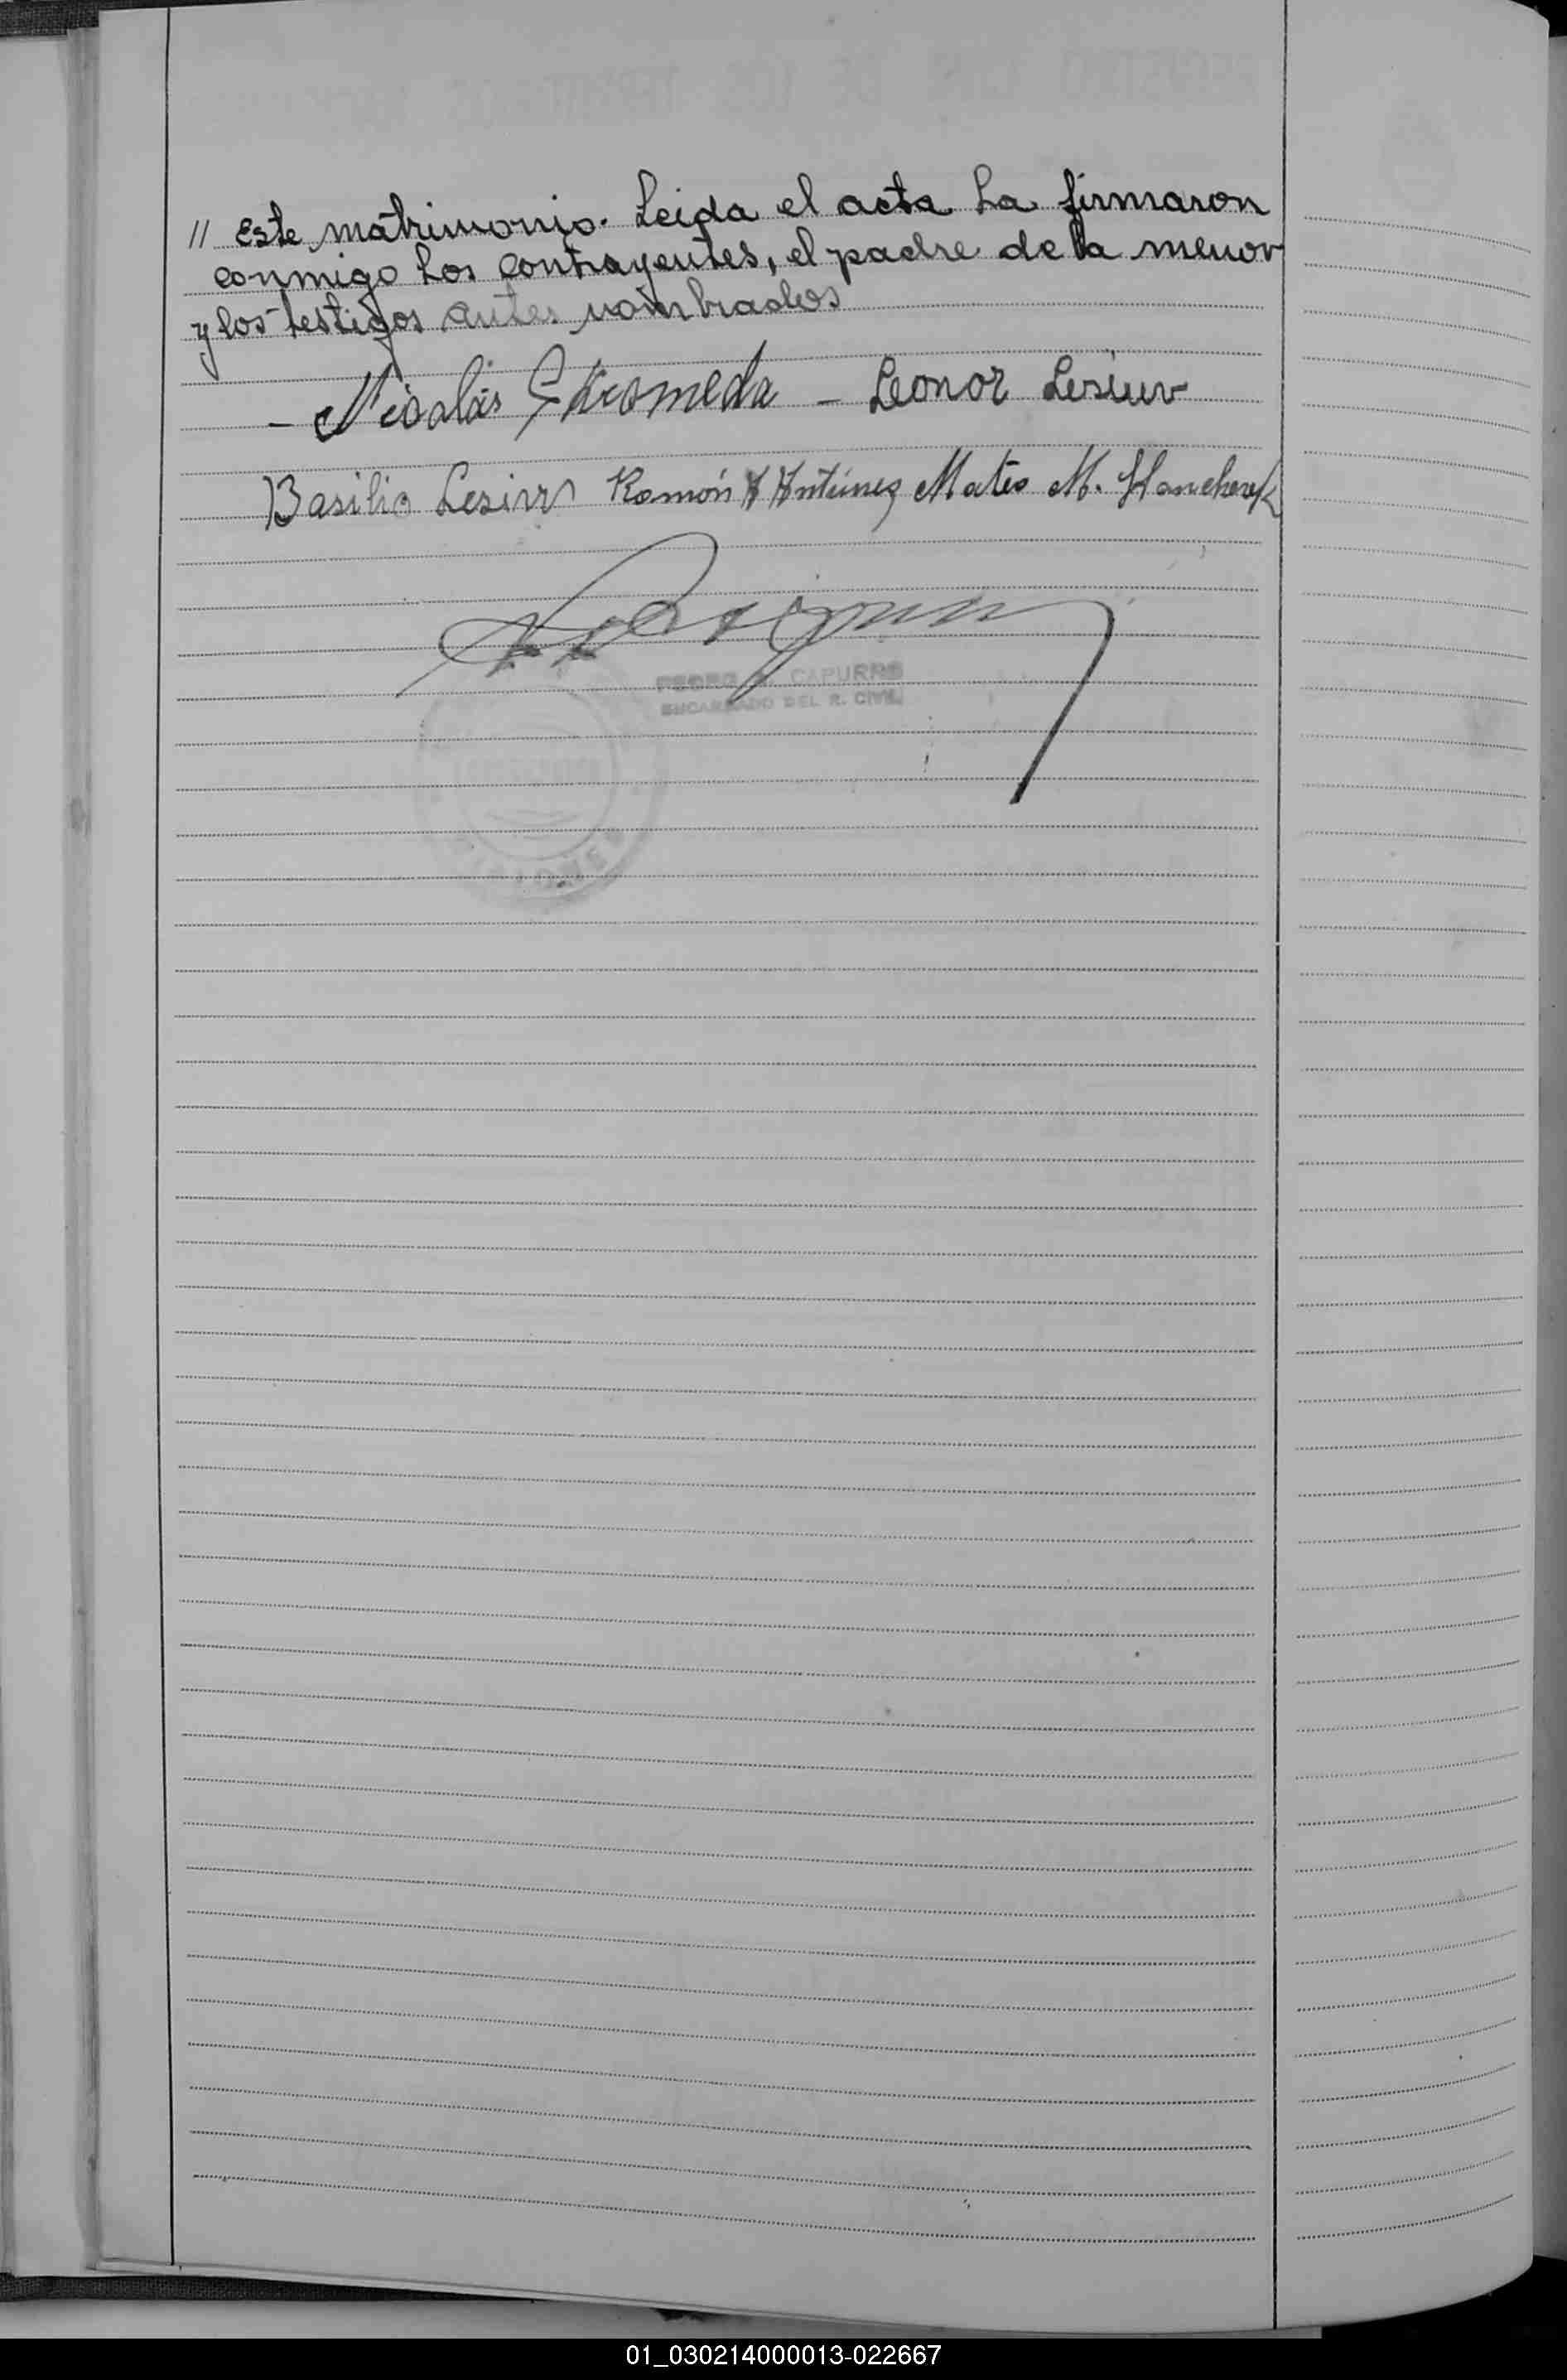 // Este matrimonio. Leida el acta La firmaron
conmigo Los contrayentes, el padre de la menor
y los testigos antes nombrados
- Nicolás Skromeda - Leonor Lesiuv
Basilio Lesiuv Ramón A Antúnez Mateo M. Hancherek
PEDRO CAPURRO
ENCARGADO DEL R. CIVIL
MISIONES
01_030214000013-022667